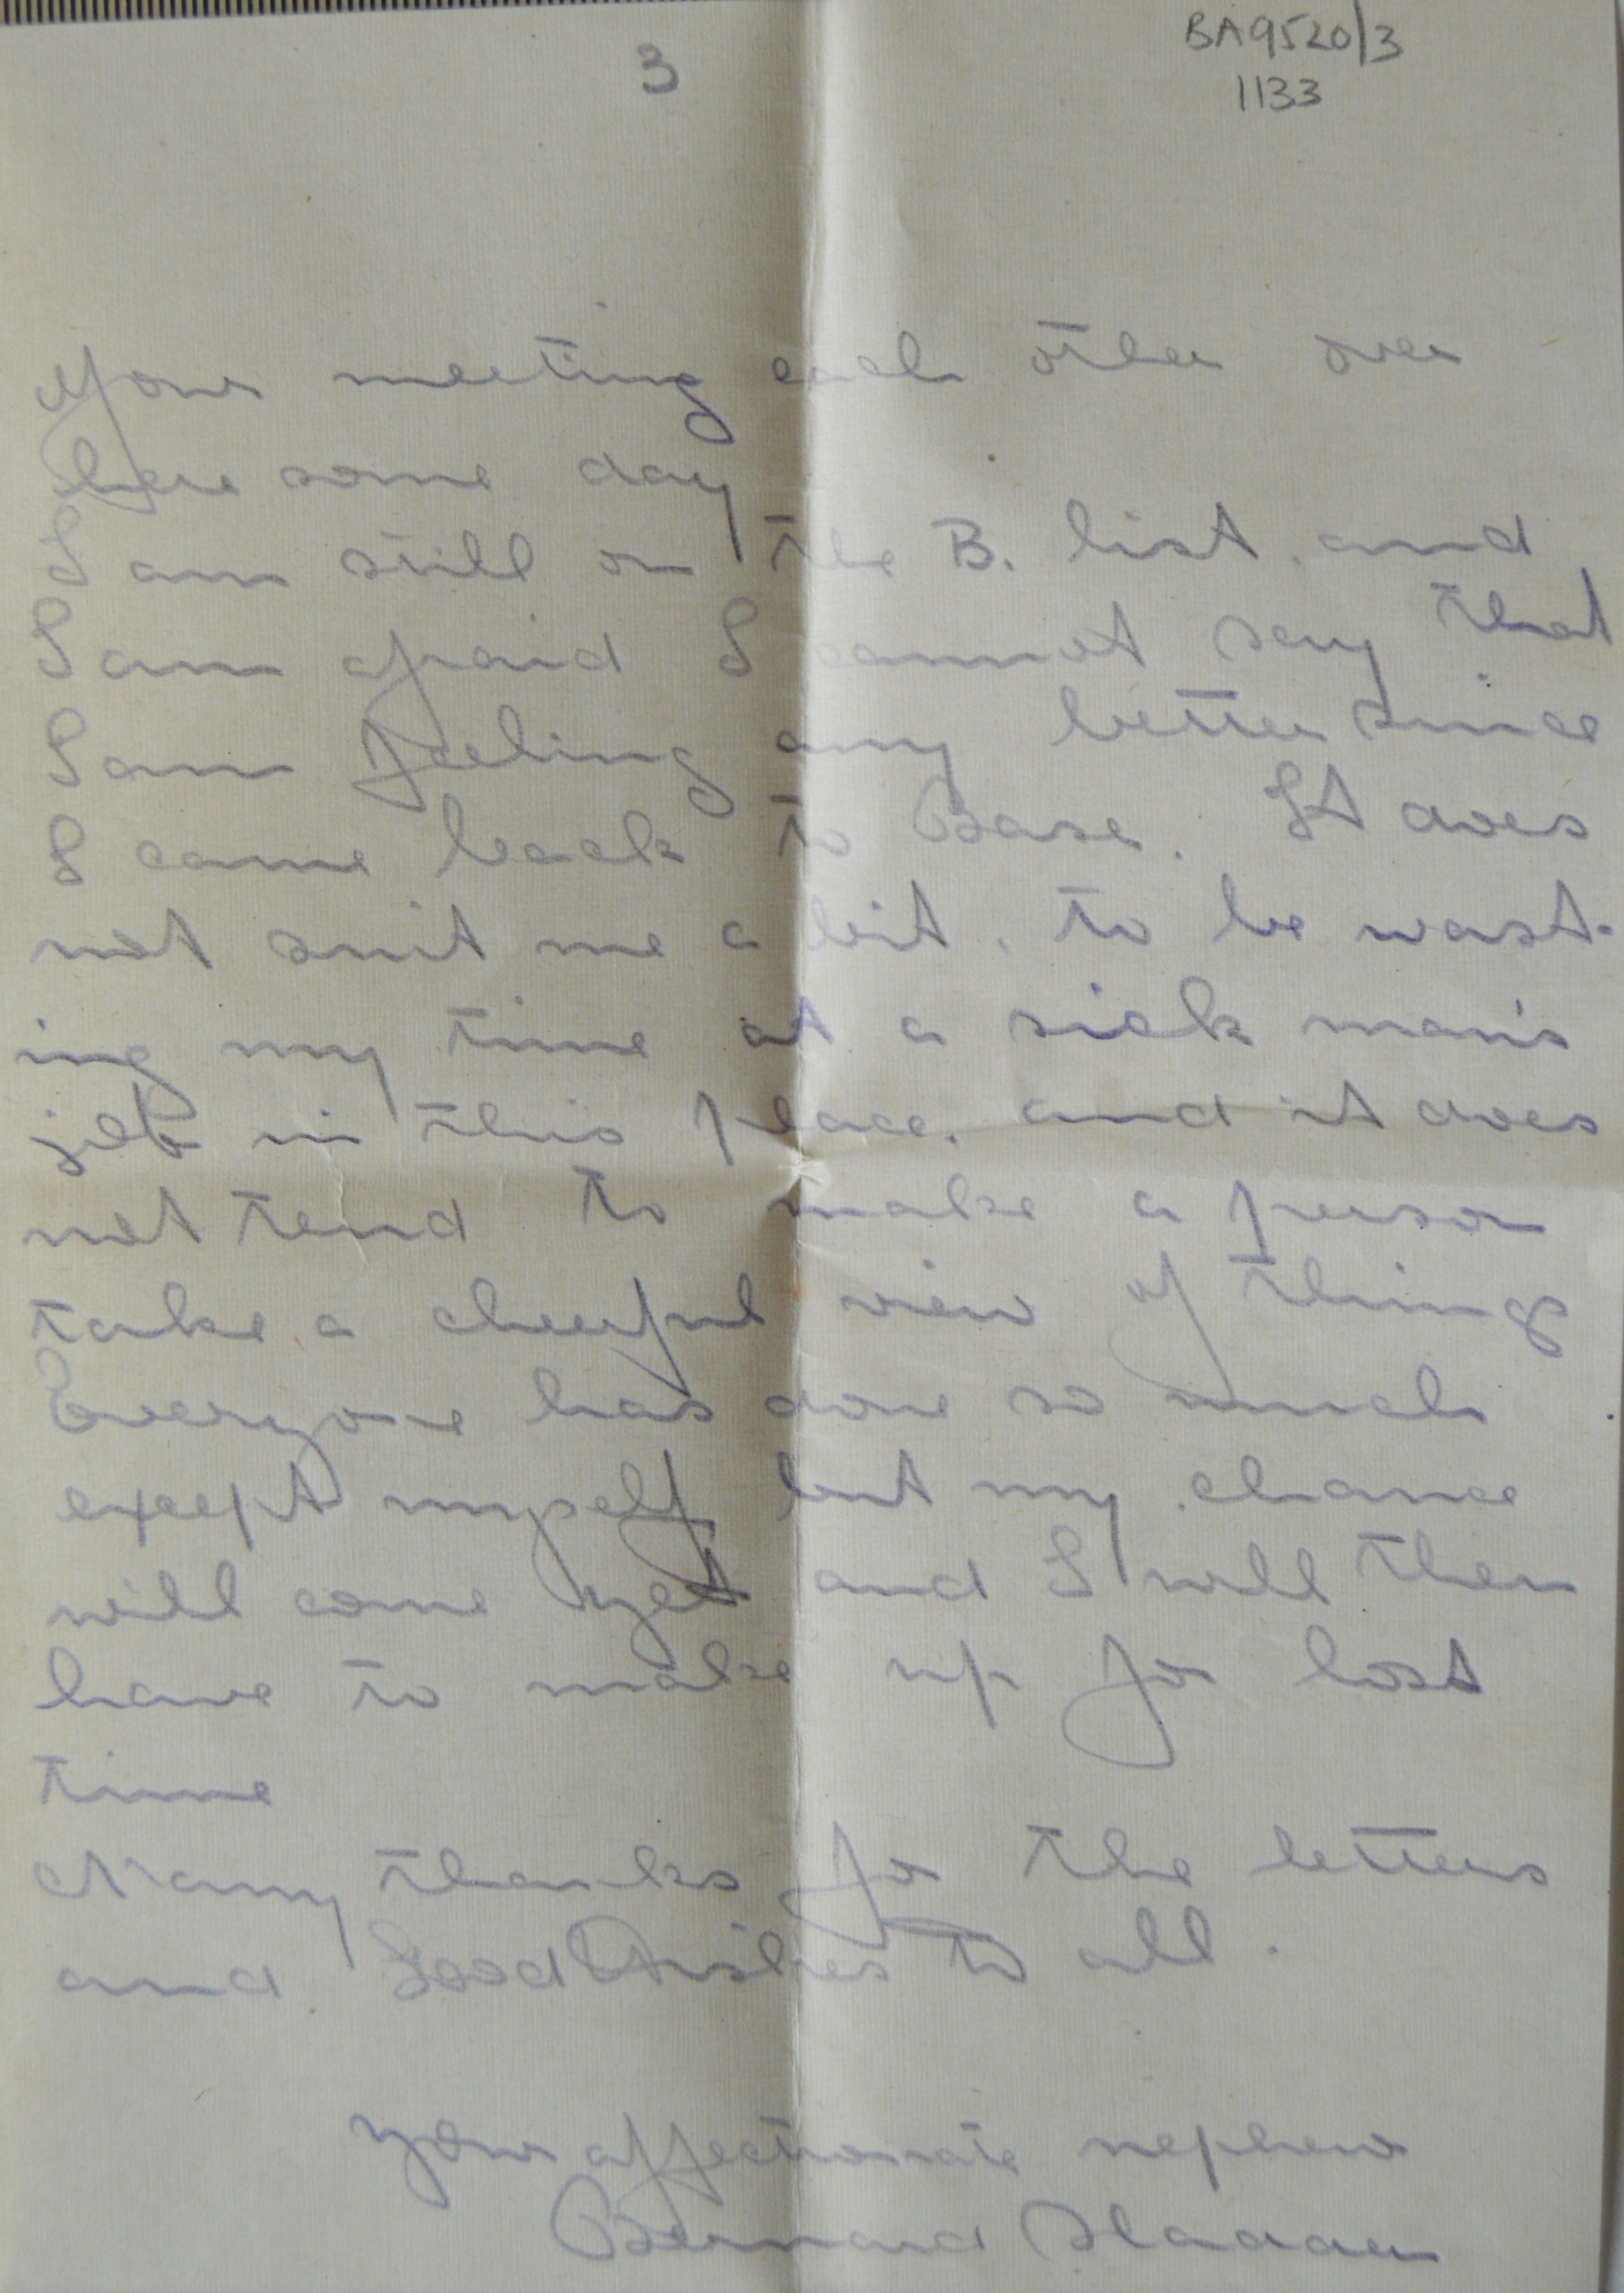 3
BA9520/3
1133
your meeting each other over
here some day
I am still on the B. list. and
I am afraid I cannot say that
I am feeling any better since
I came back to Base. It does
not suit me a bit. to be wast-
ing my time at a sick man's
job in this place. and it does
not tend to make a person
take a cheerful view of things
Everyone has done so much
except myself but my chance
will come yet and I will then
have to make up for lost
time
Many thanks for the letters
and Good Wishes to all.
your affectionate nephew
Bernard